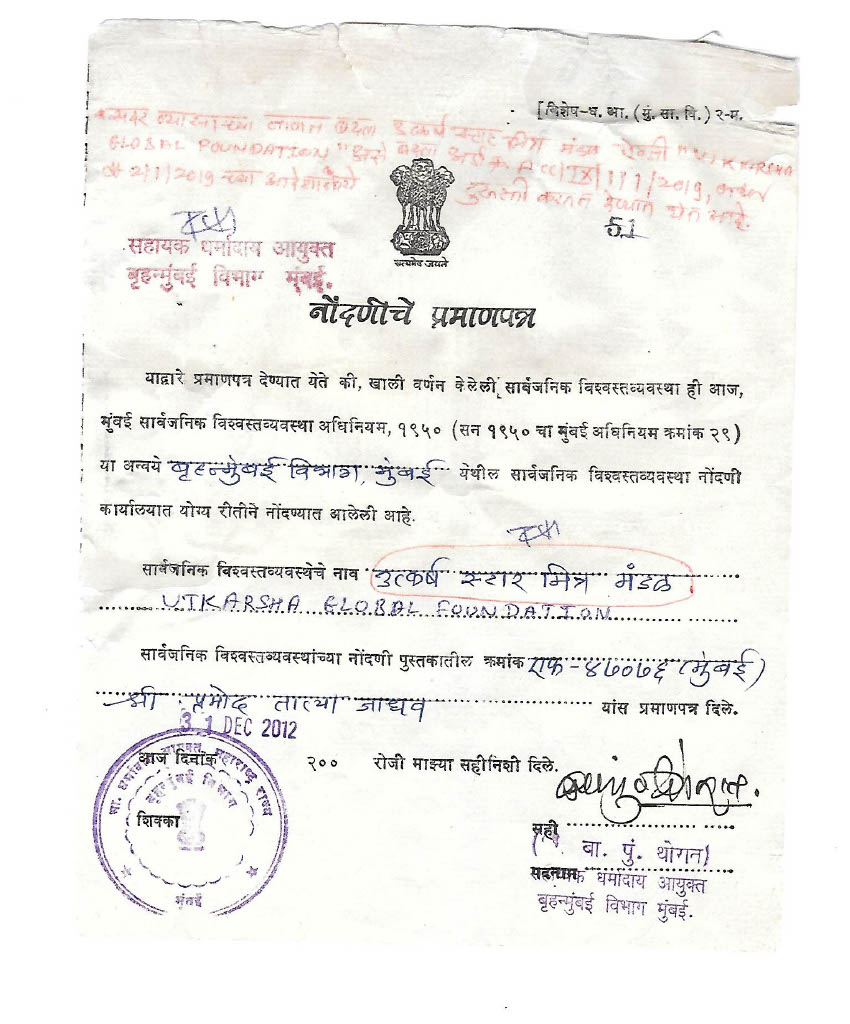 [विशेष-ध. आ. (मुं. सा. वि.) २-म.
सदर न्यासाच्या नावात बदल उत्कर्ष स्टार मित्र मंडळ ऐवजी "UTKARSHA
GLOBAL FOUNDATION" असे बदल अर्ज क्र. ACC/IX/1/1/2019,
दि 2/1/2019 च्या आदेशान्वये
दुरुस्ती करून देण्यात येत आहे.
51
सहायक धर्मादाय आयुक्त
बृहन्मुंबई विभाग मुंबई.
सत्यमेव जयते
नोंदणीचे प्रमाणपत्र
याद्वारे प्रमाणपत्र देण्यात येते की, खाली वर्णन केलेली सार्वजनिक विश्वस्तव्यवस्था ही आज,
मुंबई सार्वजनिक विश्वस्तव्यवस्था अधिनियम, १९५० (सन १९५० चा मुंबई अधिनियम क्रमांक २९)
या अन्वये बृहन्मुंबई विभाग, मुंबई येथील सार्वजनिक विश्वस्तव्यवस्था नोंदणी
कार्यालयात योग्य रीतीने नोंदण्यात आलेली आहे.
सार्वजनिक विश्वस्तव्यवस्थेचे नाव उत्कर्ष स्टार मित्र मंडळ
UTKARSHA GLOBAL FOUNDATION
सार्वजनिक विश्वस्तव्यवस्थांच्या नोंदणी पुस्तकातील क्रमांक एफ-४७०७६ (मुंबई)
श्री. प्रमोद तात्या जाधव यांस प्रमाणपत्र दिले.
31 DEC 2012
आज दिनांक २०० रोजी माझ्या सहीनिशी दिले.
सा. धर्मादाय आयुक्त, महाराष्ट्र राज्य
बृहन्मुंबई विभाग
मुंबई
शिक्का
सही
(बा. पुं. थोगन)
धर्मादाय आयुक्त
बृहन्मुंबई विभाग मुंबई.